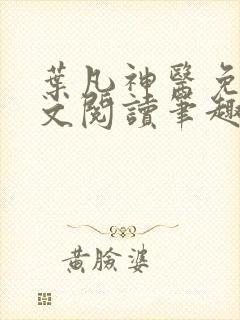 葉凡神醫免
文閱讀筆趣
黃臉婆